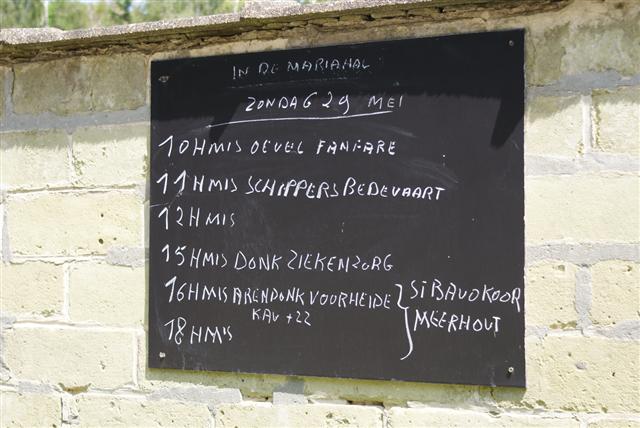 IN DE MARIAHAL
ZONDAG 29 MEI
10HMIS OEVEL FANFARE
11HMIS SCHIPPERSBEDEVAART
12HMIS
15HMIS DONK ZIEKENZORG
16HMIS ARENDONK VOORHEIDE
KAV +22
18HMIS
ST BAVOKOOR
MEERHOUT